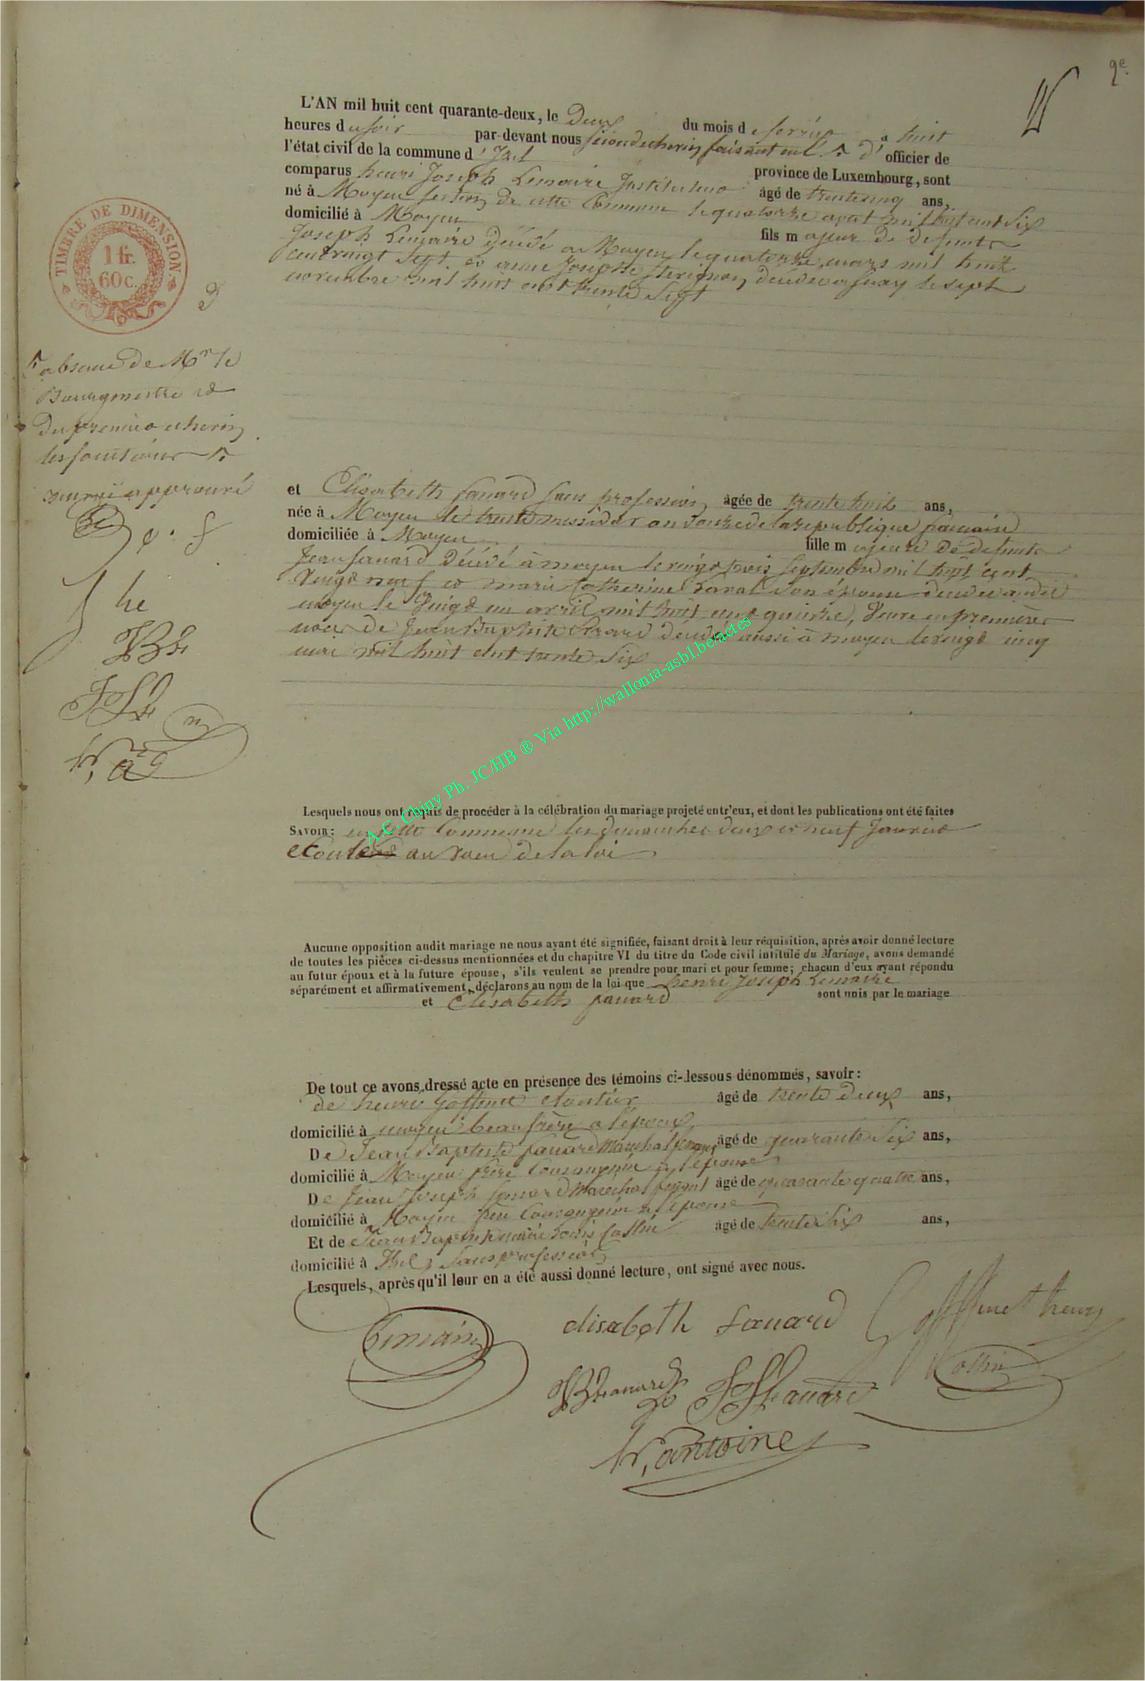 2e
L'AN mil huit cent quarante-deux, le Deux du mois de fevrier à huit
heures du soir par-devant nous second echevin faisant en l' d' officier de
l'état civil de la commune d' Izel province de Luxembourg, sont
comparus henri Joseph Lemaire Instituteur âgé de trente cinq ans,
né à Moyen section de cette Commune le quatorze août mil huit cent Six
domicilié à Moyen fils majeur de defunts
Joseph Lemaire décédé a Moyen le quatorze mars mil huit
cent vingt Sept et anne Josephe décédée a le sept
novembre mil huit cent trente Sept
TIMBRE DE DIMENSION
1 fr.
60c.
absence de Mr le
Bourgmestre et
du premier echevin
les fonctions
renvoi approuvé
he
et Elisabeth fanard Sans profession âgée de trente huit ans,
née à Moyen le trente messidor an douze de la republique francaise
domiciliée à Moyen fille majeure de defunts
Jean fanard Décédé à moyen le vingt trois Septembre mil huit cent
vingt neuf et marie Catherine Son épouse decedee audit
moyen le Vingt un avril mil huit cent quinze, Veuve en premières
noces de Jean Baptiste decedé aussi à moyen le vingt cinq
mai mil huit cent trente Six
A.C. Chiny Ph. JC/HB ® Via http://wallonia-asbl.be/actes
Lesquels nous ont requis de procéder à la célébration du mariage projeté entr'eux, et dont les publications ont été faites
SAVOIR: en cette Commune les dimanches deux et neuf Janvier
au voeu de la loi
Aucune opposition audit mariage ne nous ayant été signifiée, faisant droit à leur réquisition, après avoir donné lecture
de toutes les pièces ci-dessus mentionnées et du chapitre VI du titre du Code civil intitulé du Mariage, avons demandé
au futur époux et à la future épouse, s'ils veulent se prendre pour mari et pour femme; chacun d'eux ayant répondu
séparément et affirmativement, déclarons au nom de la loi que henri Joseph Lemaire
et Elisabeth fanard sont unis par le mariage
De tout ce avons dressé acte en présence des témoins ci-dessous dénommés, savoir:
de henri Goffinet cloutier âgé de trente deux ans,
domicilié à moyen beau frère a l'époux
De Jean Baptiste fanard Marechal ferrant âgé de quarante Six ans,
domicilié à Moyen frère Consanguin a l'épouse
De Jean Joseph fanard marechal ferrant âgé de quarante quatre ans,
domicilié à Moyen frère Consanguin a l'épouse
Et de Jean Baptiste Louis Collin âgé de trente Six ans,
domicilié à Izel Sans profession
Lesquels, après qu'il leur en a été aussi donné lecture, ont signé avec nous.
Lemaire
elisabeth fanard
Goffinet henry
JB fanard
JJ fanard
Collin
antoine